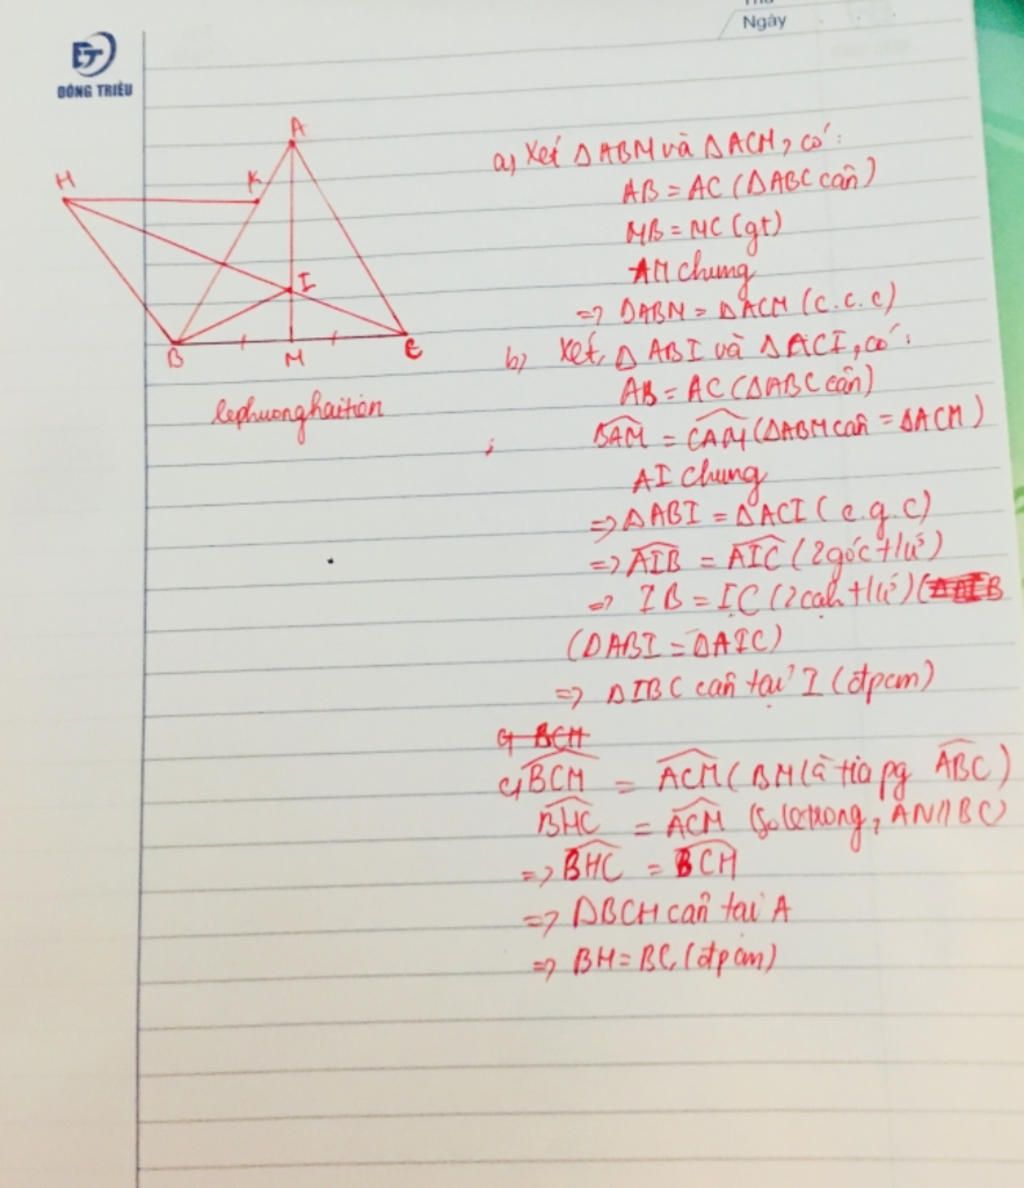 Thứ
Ngày
ĐÔNG TRIỀU
A
H
K
I
B
M
C
lephuonghaitian
a, Xét ΔABM và ΔACM, có:
AB = AC (ΔABC cân)
MB = MC (gt)
AM chung
=> ΔABM = ΔACM (c.c.c)
b, Xét, ΔABI và ΔACI, có:
AB = AC (ΔABC cân)
BAM = CAM (ΔABM cân = ΔACM)
AI chung
=> ΔABI = ΔACI (c.g.c)
=> AIB = AIC (2 góc t/ứ)
=> IB = IC (2 cạh t/ứ) (
(ΔABI = ΔAIC)
=> ΔIBC cân tại I (đpcm)
c, BCH
c, BCM = ACM (BM là tia pg ABC)
BHC = ACM (So le trong, AN//BC)
=> BHC = BCH
=> ΔBCH cân tại A
=> BH = BC, (đpcm)